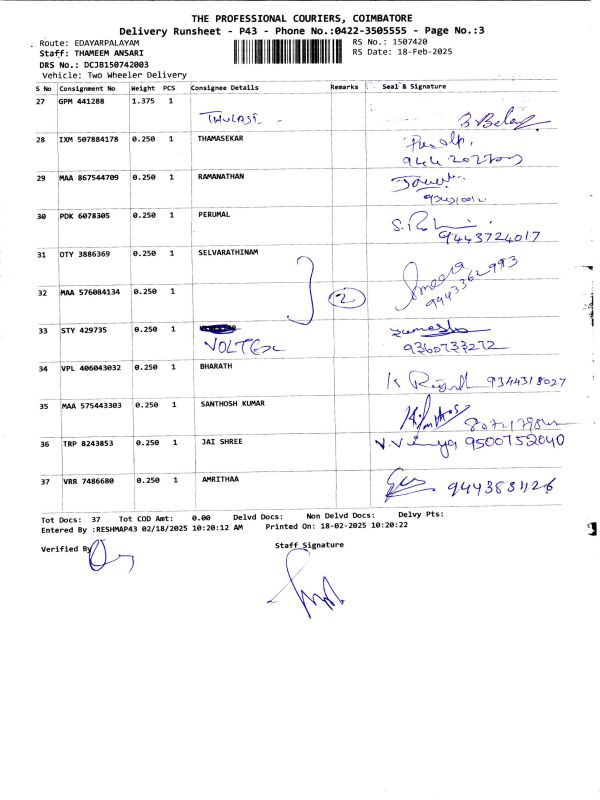 THE PROFESSIONAL COURIERS, COIMBATORE
Delivery Runsheet - P43 - Phone No.:0422-3505555 - Page No.:3
Route: EDAYARPALAYAM RS No.: 1507420
Staff: THAMEEM ANSARI RS Date: 18-Feb-2025
DRS No.: DCJB150742003
Vehicle: Two Wheeler Delivery
S No Consignment No Weight PCS Consignee Details Remarks Seal & Signature
27 GPM 441288 1.375 1
THULASI
28 IXM 507884178 0.250 1 THAMASEKAR
29 MAA 867544709 0.250 1 RAMANATHAN
30 PDK 6078305 0.250 1 PERUMAL
9443724017
31 OTY 3886369 0.250 1 SELVARATHINAM
32 MAA 576084134 0.250 1 2
9943362993
33 STY 429735 0.250 1
VOLTEX 9360733272
34 VPL 406043032 0.250 1 BHARATH
9344318027
35 MAA 575443303 0.250 1 SANTHOSH KUMAR
36 TRP 8243853 0.250 1 JAI SHREE 9500752040
37 VRR 7486680 0.250 1 AMRITHAA
Tot Docs: 37 Tot COD Amt: 0.00 Delvd Docs: Non Delvd Docs: Delvy Pts:
Entered By :RESHMAP43 02/18/2025 10:20:12 AM Printed On: 18-02-2025 10:20:22
Verified By Staff Signature